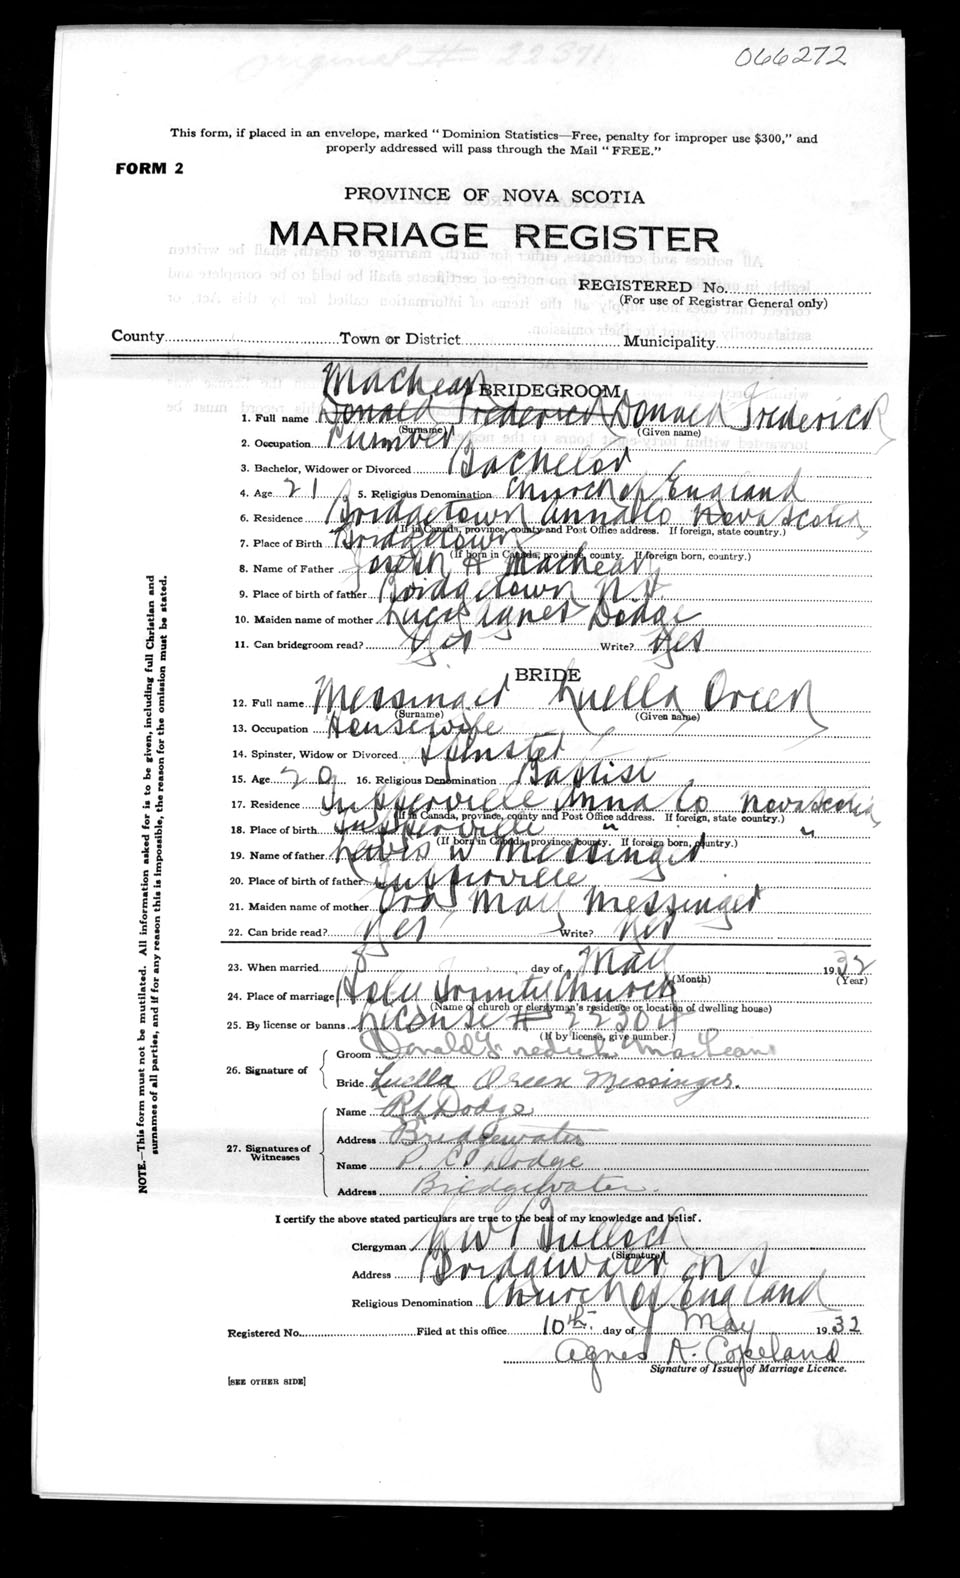 Original # 22371
066272
This form, if placed in an envelope, marked "Dominion Statistics—Free, penalty for improper use $300," and
properly addressed will pass through the Mail "FREE."
FORM 2
PROVINCE OF NOVA SCOTIA
MARRIAGE REGISTER
REGISTERED No.
(For use of Registrar General only)
County Town or District Municipality
BRIDEGROOM
MacLean
1. Full name Donald Frederick Donald Frederick
(Surname) (Given name)
2. Occupation Plumber
3. Bachelor, Widower or Divorced Bachelor
4. Age 21 5. Religious Denomination Church of England
6. Residence Bridgetown Anna Co Nova Scotia
(If in Canada, province, county and Post Office address. If foreign, state country.)
7. Place of Birth Bridgetown
(If born in Canada, province, county. If foreign born, country.)
8. Name of Father Joseph H MacLean
9. Place of birth of father Bridgetown N.S.
10. Maiden name of mother Lucy Agnes Dodge
11. Can bridegroom read? Yes Write? Yes
BRIDE
12. Full name Messinger Luella Oreen
(Surname) (Given name)
13. Occupation Housewife
14. Spinster, Widow or Divorced Spinster
15. Age 20 16. Religious Denomination Baptist
17. Residence Tupperville Anna Co Nova Scotia
(If in Canada, province, county and Post Office address. If foreign, state country.)
18. Place of birth Tupperville " "
(If born in Canada, province, county. If foreign born, country.)
19. Name of father Lewis W Messinger
20. Place of birth of father Tupperville
21. Maiden name of mother Ora May Messinger
22. Can bride read? Yes Write? Yes
23. When married day of May 1932
(Month) (Year)
24. Place of marriage Holy Trinity Church
(Name of church or clergyman's residence or location of dwelling house)
25. By license or banns License # 22304
(If by license, give number.)
26. Signature of
Groom Donald Frederick MacLean
Bride Luella Oreen Messinger.
27. Signatures of
Witnesses
Name R L Dodge
Address Bridgewater
Name P. E. Dodge
Address Bridgewater.
I certify the above stated particulars are true to the best of my knowledge and belief.
Clergyman W Bullock
(Signature)
Address Bridgewater N S
Religious Denomination Church of England
Registered No. Filed at this office 10th day of May 1932
Agnes A. Copeland
Signature of Issuer of Marriage Licence.
[SEE OTHER SIDE]
NOTE.—This form must not be mutilated. All information asked for is to be given, including full Christian and
surnames of all parties, and if for any reason this is impossible, the reason for the omission must be stated.